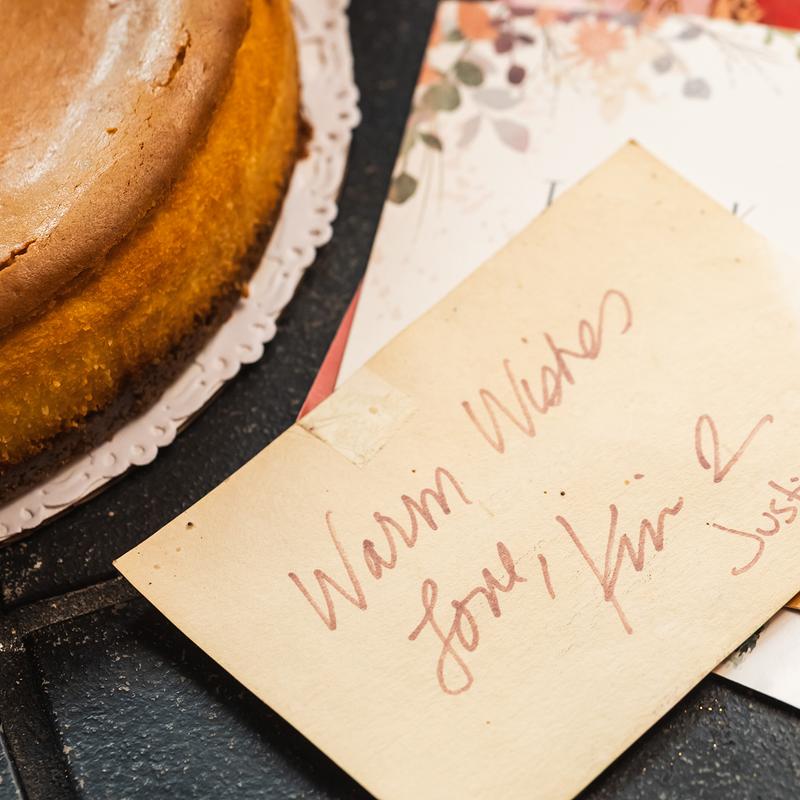 Warm Wishes
Love, Kim &
Justi